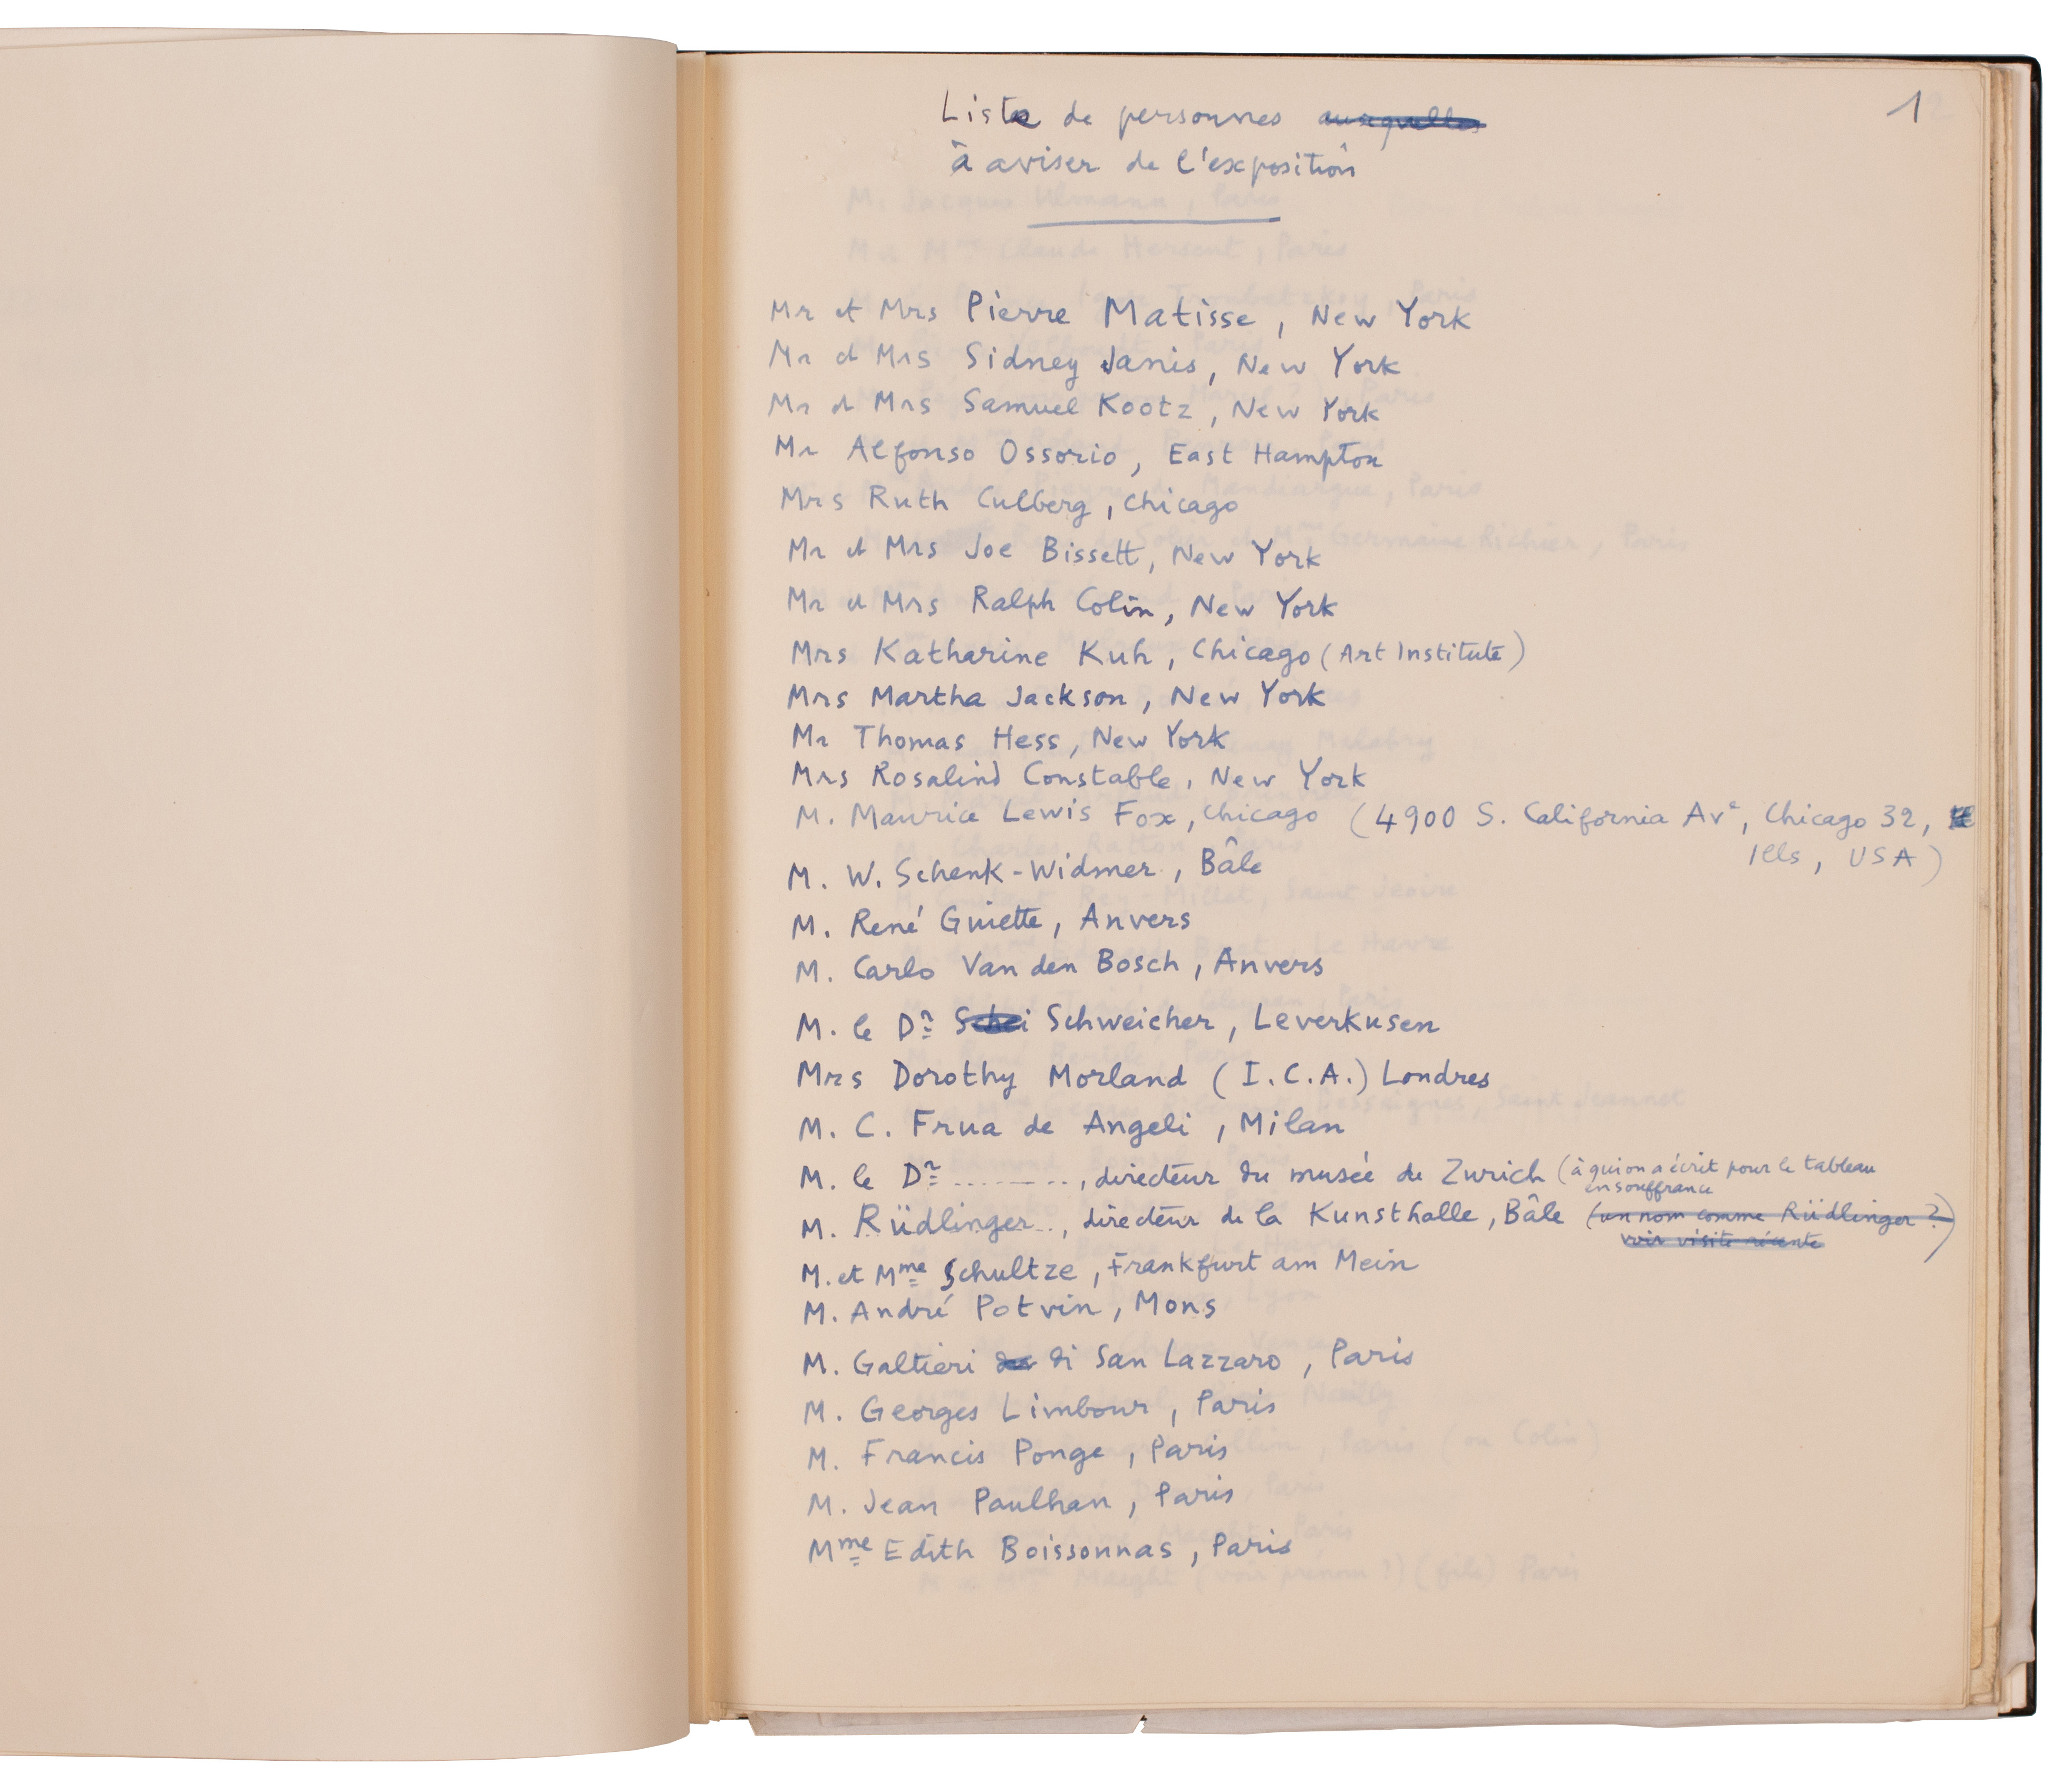 1
Liste de personnes auxquelles
à aviser de l'exposition
Mr et Mrs Pierre Matisse, New York
Mr et Mrs Sidney Janis, New York
Mr et Mrs Samuel Kootz, New York
Mr Alfonso Ossorio, East Hampton
Mrs Ruth Culberg, Chicago
Mr et Mrs Joe Bissett, New York
Mr et Mrs Ralph Colin, New York
Mrs Katharine Kuh, Chicago (Art Institute)
Mrs Martha Jackson, New York
Mr Thomas Hess, New York
Mrs Rosalind Constable, New York
M. Maurice Lewis Fox, Chicago (4900 S. California Ave, Chicago 32,
Ills, USA)
M. W. Schenk-Widmer, Bâle
M. René Guiette, Anvers
M. Carlo Van den Bosch, Anvers
M. le Dr Schei Schweicher, Leverkusen
Mrs Dorothy Morland (I.C.A.) Londres
M. C. Frua de Angeli, Milan
M. le Dr ........., directeur du musée de Zurich (à qui on a écrit pour le tableau
en souffrance
M. Rüdlinger.., directeur de la Kunsthalle, Bâle (un nom comme Rüdlinger ?
voir visite récente)
M. et Mme Schultze, Frankfurt am Mein
M. André Potvin, Mons
M. Galtieri de di San Lazzaro, Paris
M. Georges Limbour, Paris
M. Francis Ponge, Paris
M. Jean Paulhan, Paris
Mme Edith Boissonnas, Paris